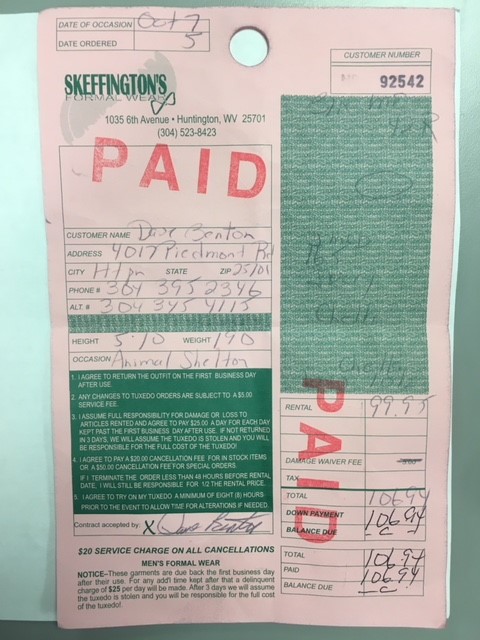 DATE OF OCCASION Oct 7
DATE ORDERED 5
CUSTOMER NUMBER
92542
SKEFFINGTON'S
FORMAL WEAR
1035 6th Avenue • Huntington, WV 25701
(304) 523-8423
PAID
CUSTOMER NAME Dave Benton
ADDRESS 4017 Piedmont Rd
CITY Htgn STATE ZIP 25701
PHONE # 304 395 2346
ALT. # 304 345 4115
HEIGHT 5-10 WEIGHT 190
OCCASION Animal Shelton
1. I AGREE TO RETURN THE OUTFIT ON THE FIRST BUSINESS DAY
AFTER USE.
2. ANY CHANGES TO TUXEDO ORDERS ARE SUBJECT TO A $5.00
SERVICE FEE.
3. I ASSUME FULL RESPONSIBILITY FOR DAMAGE OR LOSS TO
ARTICLES RENTED AND AGREE TO PAY $25.00 A DAY FOR EACH DAY
KEPT PAST THE FIRST BUSINESS DAY AFTER USE. IF NOT RETURNED
IN 3 DAYS, WE WILL ASSUME THE TUXEDO IS STOLEN AND YOU WILL
BE RESPONSIBLE FOR THE FULL COST OF THE TUXEDO!.
4. I AGREE TO PAY A $20.00 CANCELLATION FEE FOR IN STOCK ITEMS
OR A $50.00 CANCELLATION FEE FOR SPECIAL ORDERS.
IF I TERMINATE THE ORDER LESS THAN 48 HOURS BEFORE RENTAL
DATE, I WILL STILL BE RESPONSIBLE FOR 1/2 THE RENTAL PRICE.
5. I AGREE TO TRY ON MY TUXEDO A MINIMUM OF EIGHT (8) HOURS
PRIOR TO THE EVENT TO ALLOW TIME FOR ALTERATIONS IF NEEDED.
Contract accepted by: X Dave Benton
$20 SERVICE CHARGE ON ALL CANCELLATIONS
MEN'S FORMAL WEAR
NOTICE–These garments are due back the first business day
after their use. For any add'l time kept after that a delinquent
charge of $25 per day will be made. After 3 days we will assume
the tuxedo is stolen and you will be responsible for the full cost
of the tuxedo!.
PAID
RENTAL 99.95
DAMAGE WAIVER FEE
TAX
TOTAL 106.94
DOWN PAYMENT 106.94
BALANCE DUE
TOTAL 106.94
PAID 106.94
BALANCE DUE